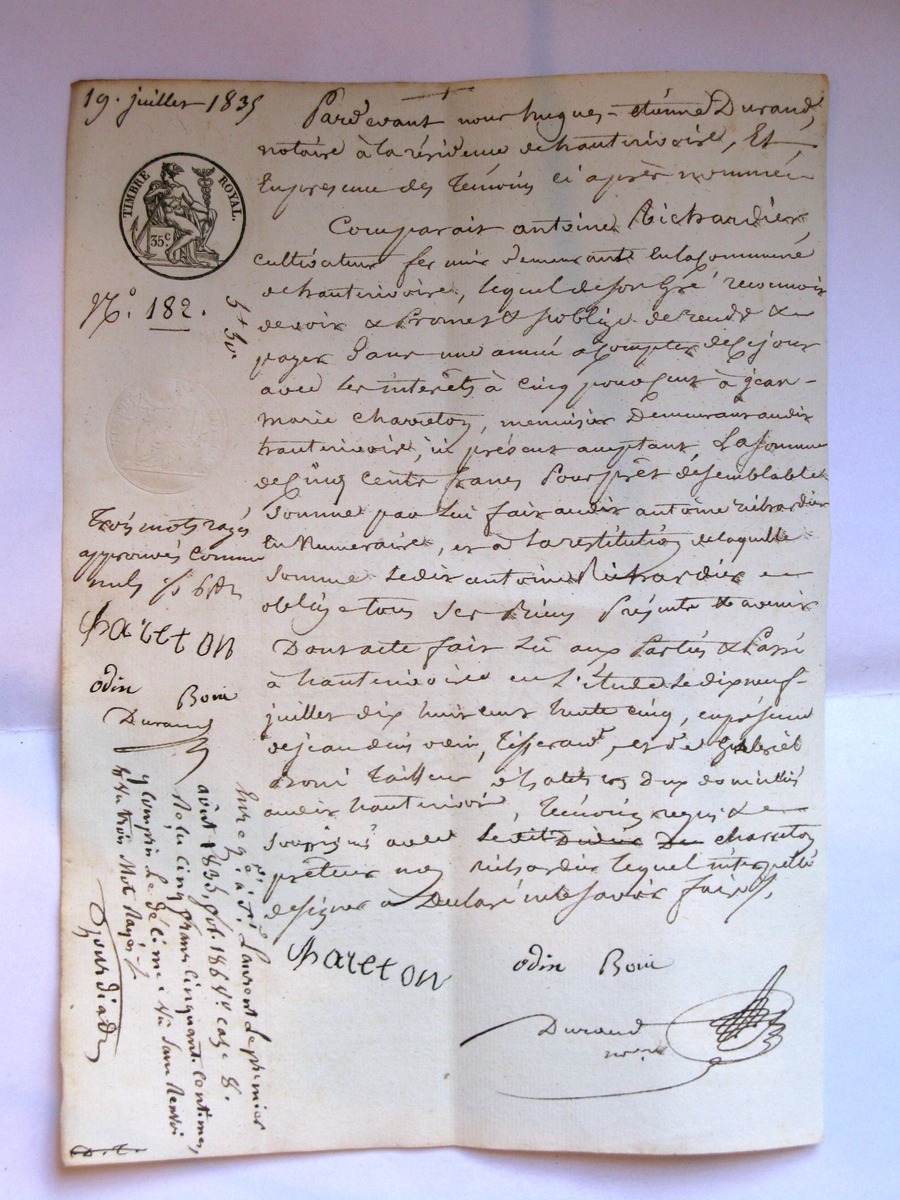 19. juillet 1835
TIMBRE ROYAL.
35c
No. 182.
5 + 50
trois mots rayés
approuvés comme
nuls
Chareton
odin Boni
Durand
Pardevant nous hugues-étienne Durand,
notaire à la résidence de hauterivoire, Et
En presence des témoins ci après nommés
Comparait antoine Richardier,
cultivateur fermier demeurant en la commune
de hauterivoire, lequel de son Gré reconnoit
devoir & Promet & s'oblige de rendre &
payer Dans une année a compter de ce jour
avec les interêts à cinq pour cent à jean-
marie Charreton, menuisier Demeurant audit
hauterivoire, ici présent acceptant, La somme
de Cinq cents francs Pour prêt de semblable
somme par Lui fait audit antoine richardier
En Numeraire, et à La restitution de laquelle
somme Ledit antoine Richardier
oblige tous Ses Biens Présents & avenir
Dont acte fait Lu aux Parties & Passé
à hauterivoire en l'étude Le dix neuf
juillet dix huit cent trente cinq, en présence
de jean denis odin, Tisserand, et de Gabriel
Boni Tailleur d'habits tous Deux domiciliés
audit hauterivoire, Témoins requis &
soussignés avec Charreton
prêteur non richardier lequel interpellé
de signer à Declaré ne Savoir faire
Chareton
odin Boni
Durand
nore
Enreg.é à St Laurent Le premier
août 1835, fo. 186 Vo case 8.
Reçu cinq francs cinquante centimes,
y compris Le décime. Vu sans Renvoi
Et Vu trois Mots Rayés